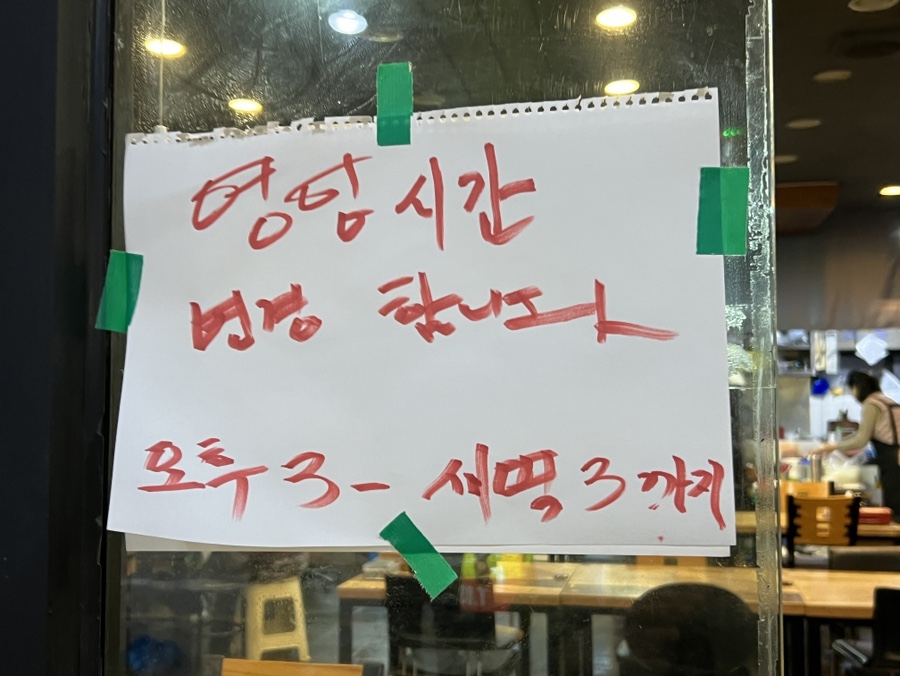 영업시간
변경 합니다
오후 3 - 새벽 3까지